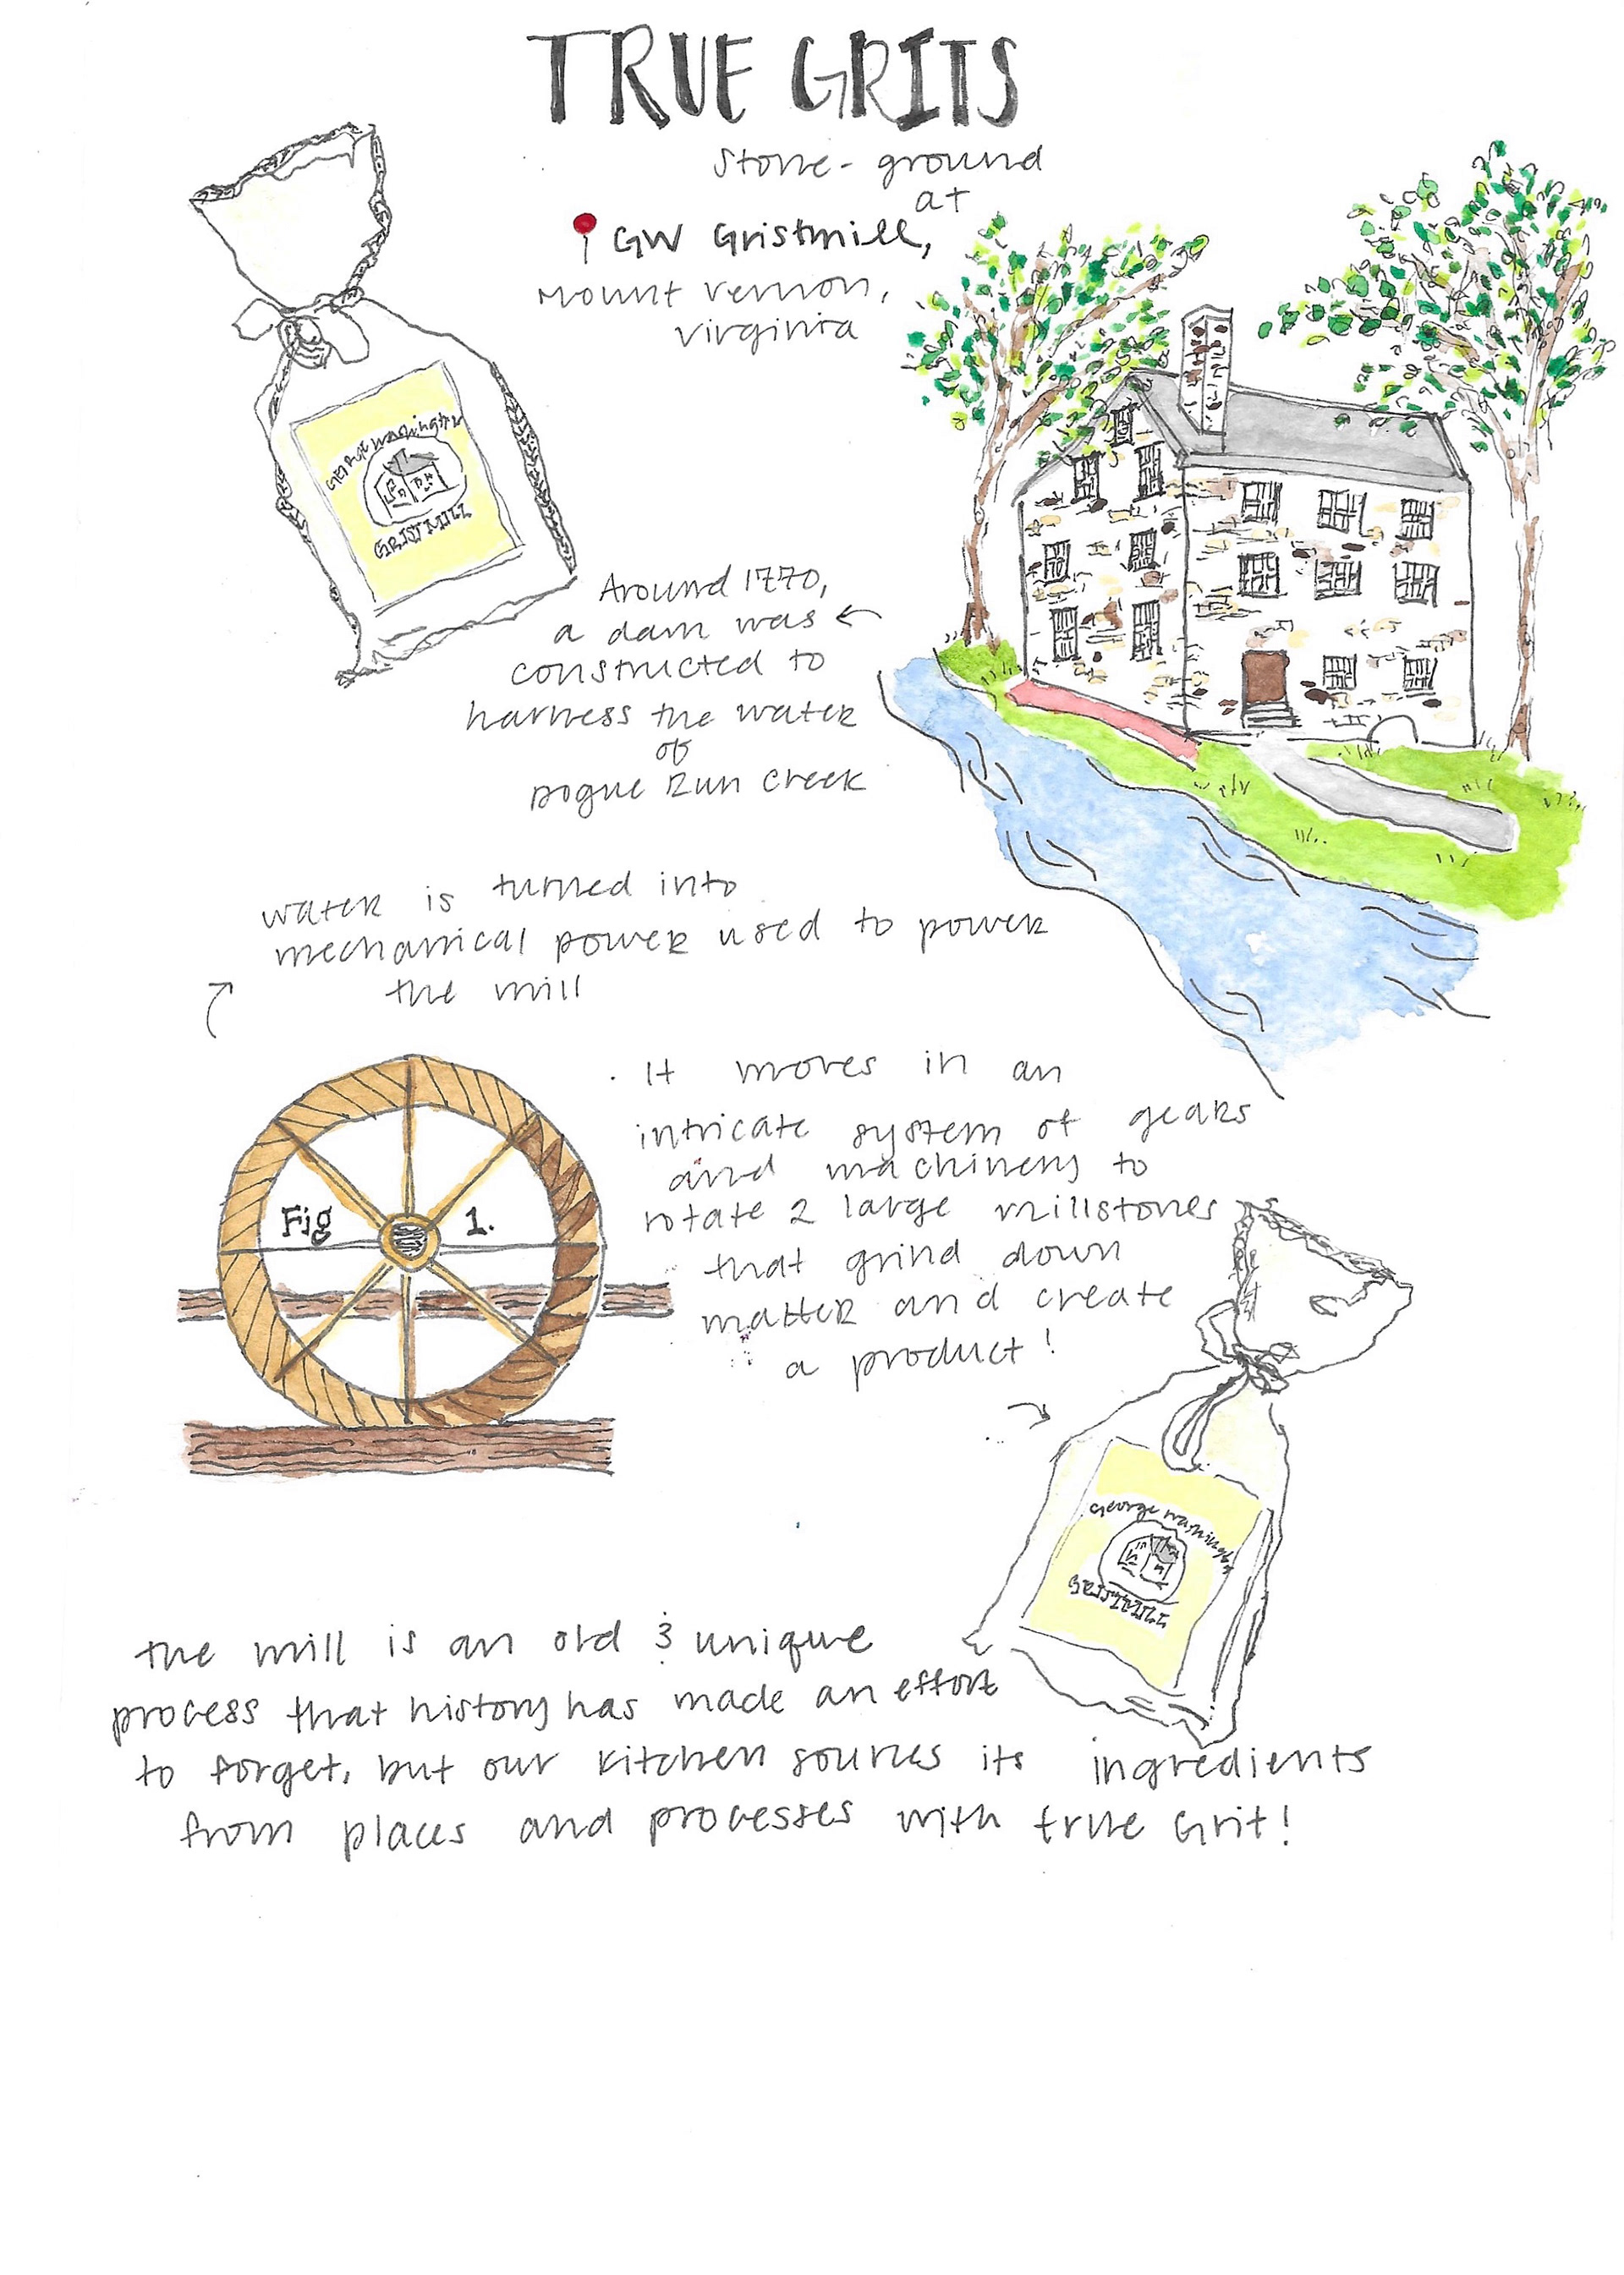 TRUE GRITS
Stone-ground
at
GW Gristmill,
Mount Vernon,
Virginia
George Washington
GRISTMILL
Around 1770,
a dam was
constructed to
harness the water
of
Dogue Run Creek
water is turned into
mechanical power used to power
the mill
Fig 1.
It moves in an
intricate system of gears
and machinery to
rotate 2 large millstones
that grind down
matter and create
a product!
George Washington
GRISTMILL
the mill is an old & unique
process that history has made an effort
to forget, but our kitchen sources its ingredients
from places and processes with true Grit!